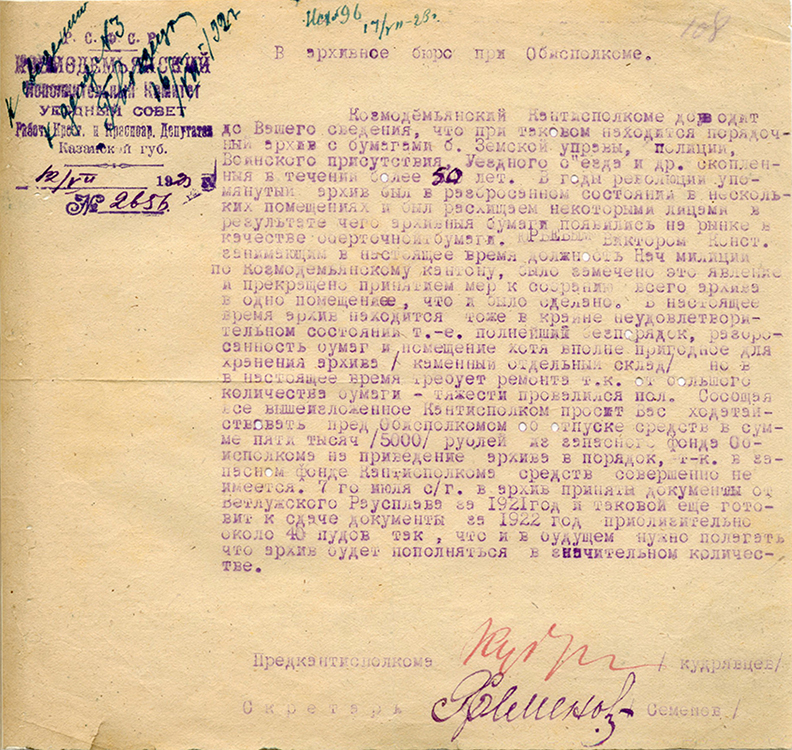 Исх №96
17/VII-23г.
108
Р. С. Ф. С. Р.
КОЗМОДЕМЬЯНСКИЙ
Исполнительный Комитет
УЕЗДНЫЙ СОВЕТ
Рабоч. Крест. и Красноар. Депутатов
Казанской губ.
12/VII 1923
№ 2656.
В архивное бюро при Обисполкоме.
Козмодемьянский Кантисполкоме доводит
до Вашего сведения, что при таковом находится порядоч-
ный архив с бумагами б. Земской управы, полиции,
Воинского присутствия, Уездного с"езда и др. скоплен-
ныя в течении более 50 лет. В годы революции упо-
мянутый архив был в разбросанном состоянии в несколь-
ких помещениях и был расхищаем некоторыми лицами в
результате чего архивныя бумаги появились на рынке в
качестве оберточной бумаги. Виктором Конст.
занимающим в настоящее время должность Нач милиции
по Козмодемьянскому кантону, было замечено это явление
и прекращено принятием мер к собранию всего архива
в одно помещение, что и было сделано. В настоящее
время архив находится тоже в крайне неудовлетвори-
тельном состоянии т.-е. полнейший безпорядок, разбро-
санность бумаг и помещение хотя вполне пригодное для
хранения архива / каменный отдельный склад/ но в
в настоящее время требует ремонта т.к. от большого
количества бумаги - тяжести провалился пол. Сообщая
все вышеизложенное Кантисполком просит Вас ходатай-
ствовать пред Обисполкомом об отпуске средств в сум-
ме пяти тысяч /5000/ рублей из запаснаго фонда Об-
исполкома на приведение архива в порядок, т-к. в за-
пасном фонде Кантисполкома средств совершенно не
имеется. 7 го июля с/г. в архив приняты документы от
Ветлужского Раусплава за 1921год и таковой еще гото-
вит к сдаче документы за 1922 год приблизительно
около 40 пудов так , что и в будущем нужно полагать
что архив будет пополняться в значительном количес-
тве.
Предкантисполкома / кудрявцев/
Секретарь Семенов / Семенов /